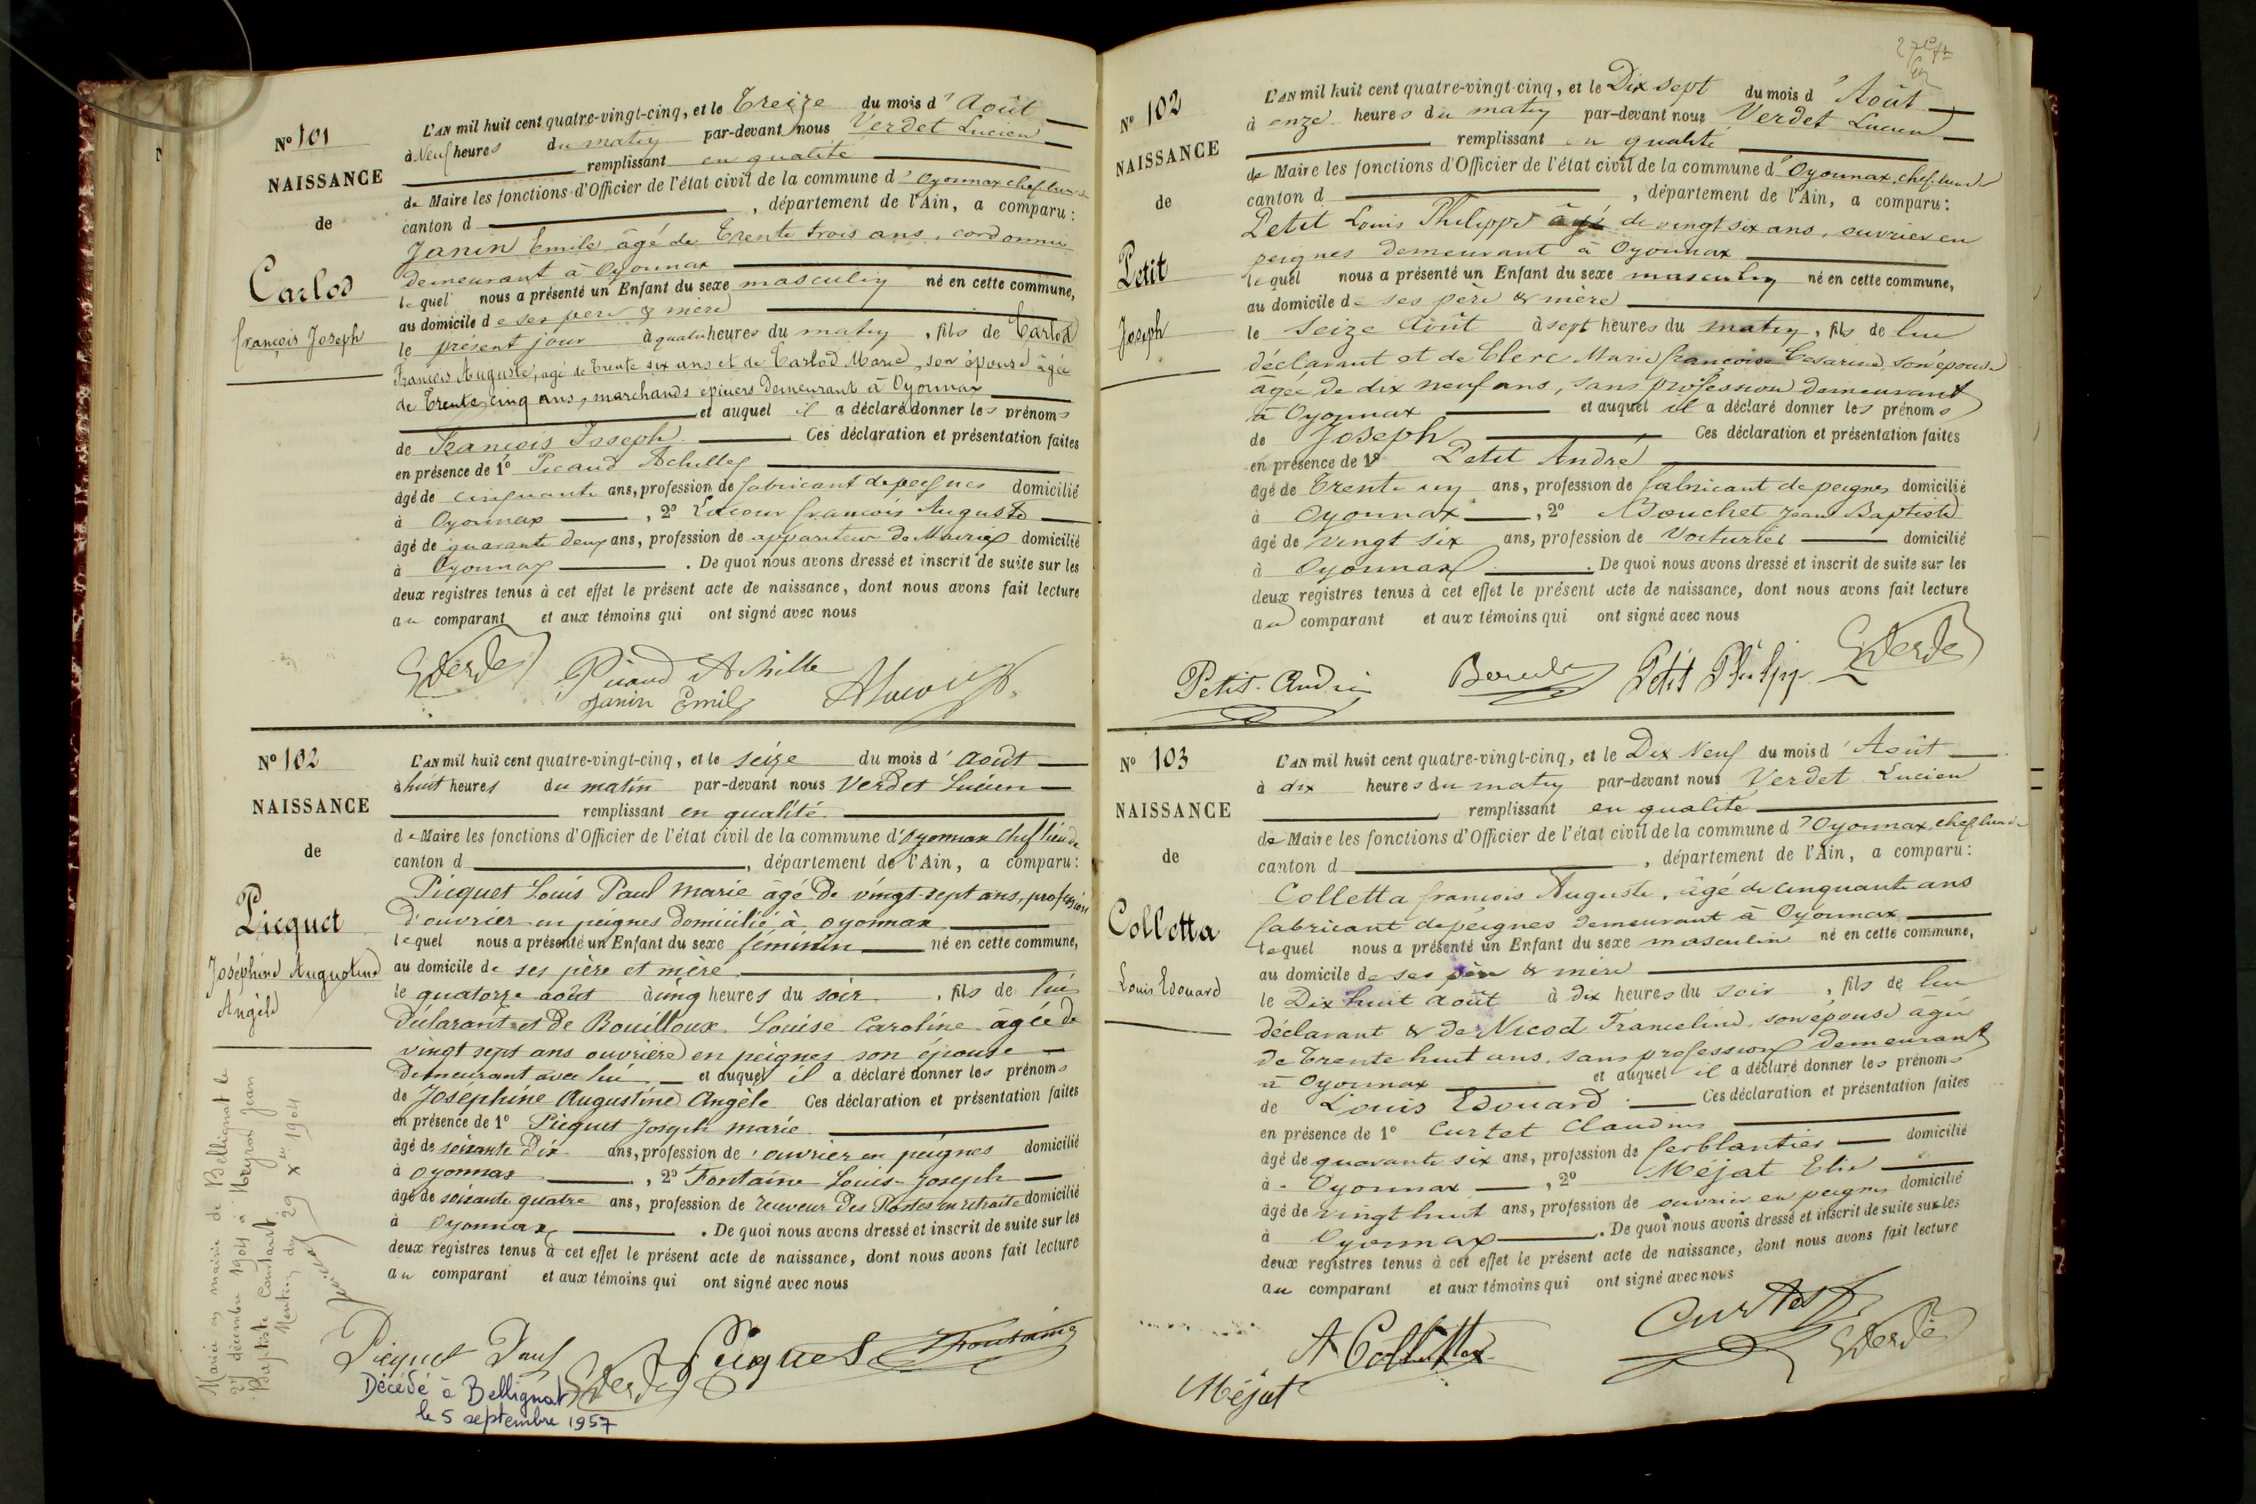 N° 101
NAISSANCE
de
Carlod
françois Joseph
L'AN mil huit cent quatre-vingt-cinq, et le Treize du mois d'Août
à Neuf heures du matin par-devant nous Verdet Lucien
remplissant en qualité
de Maire les fonctions d'Officier de l'état civil de la commune d'Oyonnax chef lieu de
canton d , département de l'Ain, a comparu :
Janin Emile âgé de Trente trois ans, cordonnier
demeurant à Oyonnax
lequel nous a présenté un Enfant du sexe masculin né en cette commune,
au domicile de ses père & mère
le présent jour à quatre heures du matin, fils de Carlod
François Auguste, âgé de Trente six ans et de Carlod Marie, son épouse âgée
de Trente cinq ans, marchands épiciers demeurant à Oyonnax
et auquel il a déclaré donner les prénoms
de François Joseph Ces déclaration et présentation faites
en présence de 1° Picaud Achille
âgé de cinquante ans, profession de fabricant de peignes domicilié
à Oyonnax , 2° Lacour françois Auguste
âgé de quarante deux ans, profession de appariteur de Mairie domicilié
à Oyonnax . De quoi nous avons dressé et inscrit de suite sur les
deux registres tenus à cet effet le présent acte de naissance, dont nous avons fait lecture
au comparant et aux témoins qui ont signé avec nous
Verdet Picaud Achille
Janin Emile
N° 102
NAISSANCE
de
Picquet
Joséphine Augustine
Angèle
L'AN mil huit cent quatre-vingt-cinq, et le seize du mois d'août
à huit heures du matin par-devant nous Verdet Lucien
remplissant en qualité
de Maire les fonctions d'Officier de l'état civil de la commune d'oyonnax chef lieu de
canton d , département de l'Ain, a comparu :
Picquet Louis Paul Marie âgé de vingt-sept ans, profession
d'ouvrier en peignes domicilié à oyonnax
lequel nous a présenté un Enfant du sexe féminin né en cette commune,
au domicile de ses père et mère
le quatorze août à cinq heures du soir , fils de lui
déclarant et de Bouilloux Louise Caroline âgée de
vingt sept ans ouvrière en peignes son épouse
demeurant avec lui et auquel il a déclaré donner les prénoms
de Joséphine Augustine Angèle Ces déclaration et présentation faites
en présence de 1° Picquet Joseph marie
âgé de soixante dix ans, profession de ouvrier en peignes domicilié
à oyonnax , 2° Fontaine Louis-Joseph
âgé de soixante quatre ans, profession de receveur des Postes en retraite domicilié
à oyonnax . De quoi nous avons dressé et inscrit de suite sur les
deux registres tenus à cet effet le présent acte de naissance, dont nous avons fait lecture
au comparant et aux témoins qui ont signé avec nous
Picquet Paul Verdet Picquet Fontaine
Mariée en mairie de Bellignat le
27 décembre 1904 à Neyron Jean
Baptiste Constant
Mention du 29 Xbre 1904
Décédé à Bellignat
le 5 septembre 1957
N° 102
NAISSANCE
de
Petit
Joseph
L'AN mil huit cent quatre-vingt-cinq, et le Dix sept du mois d'Août
à onze heures du matin par-devant nous Verdet Lucien
remplissant en qualité
de Maire les fonctions d'Officier de l'état civil de la commune d'Oyonnax, chef lieu de
canton d , département de l'Ain, a comparu :
Petit Louis Philippe âgé de vingt six ans, ouvrier en
peignes demeurant à Oyonnax
lequel nous a présenté un Enfant du sexe masculin né en cette commune,
au domicile de ses père & mère
le seize Août à sept heures du matin, fils de lui
déclarant et de Clerc Marie françoise Césarine, son épouse
âgée de dix neuf ans, sans profession demeurant
à Oyonnax et auquel il a déclaré donner les prénoms
de Joseph Ces déclaration et présentation faites
en présence de 1° Petit André
âgé de Trente un ans, profession de fabricant de peignes domicilié
à Oyonnax , 2° Bouchet Jean Baptiste
âgé de vingt six ans, profession de Voiturier domicilié
à Oyonnax . De quoi nous avons dressé et inscrit de suite sur les
deux registres tenus à cet effet le présent acte de naissance, dont nous avons fait lecture
au comparant et aux témoins qui ont signé avec nous
Petit André Petit Philippe Verdet
N° 103
NAISSANCE
de
Colletta
Louis Edouard
L'AN mil huit cent quatre-vingt-cinq, et le Dix Neuf du mois d'Août
à dix heures du matin par-devant nous Verdet Lucien
remplissant en qualité
de Maire les fonctions d'Officier de l'état civil de la commune d'Oyonnax, chef lieu de
canton d , département de l'Ain, a comparu :
Colletta françois Auguste, âgé de cinquante ans
fabricant de peignes demeurant à Oyonnax
lequel nous a présenté un Enfant du sexe masculin né en cette commune,
au domicile de ses père & mère
le Dix huit Août à dix heures du soir , fils de lui
déclarant & de Nicod Franceline, son épouse âgée
de Trente huit ans, sans profession demeurant
à Oyonnax et auquel il a déclaré donner les prénoms
de Louis Edouard Ces déclaration et présentation faites
en présence de 1° Curtet Claudius
âgé de quarante six ans, profession de ferblantier domicilié
à Oyonnax , 2° Méjat Elie
âgé de vingt huit ans, profession de ouvrier en peignes domicilié
à Oyonnax . De quoi nous avons dressé et inscrit de suite sur les
deux registres tenus à cet effet le présent acte de naissance, dont nous avons fait lecture
au comparant et aux témoins qui ont signé avec nous
A Colletta Curtet Verdet
Méjat